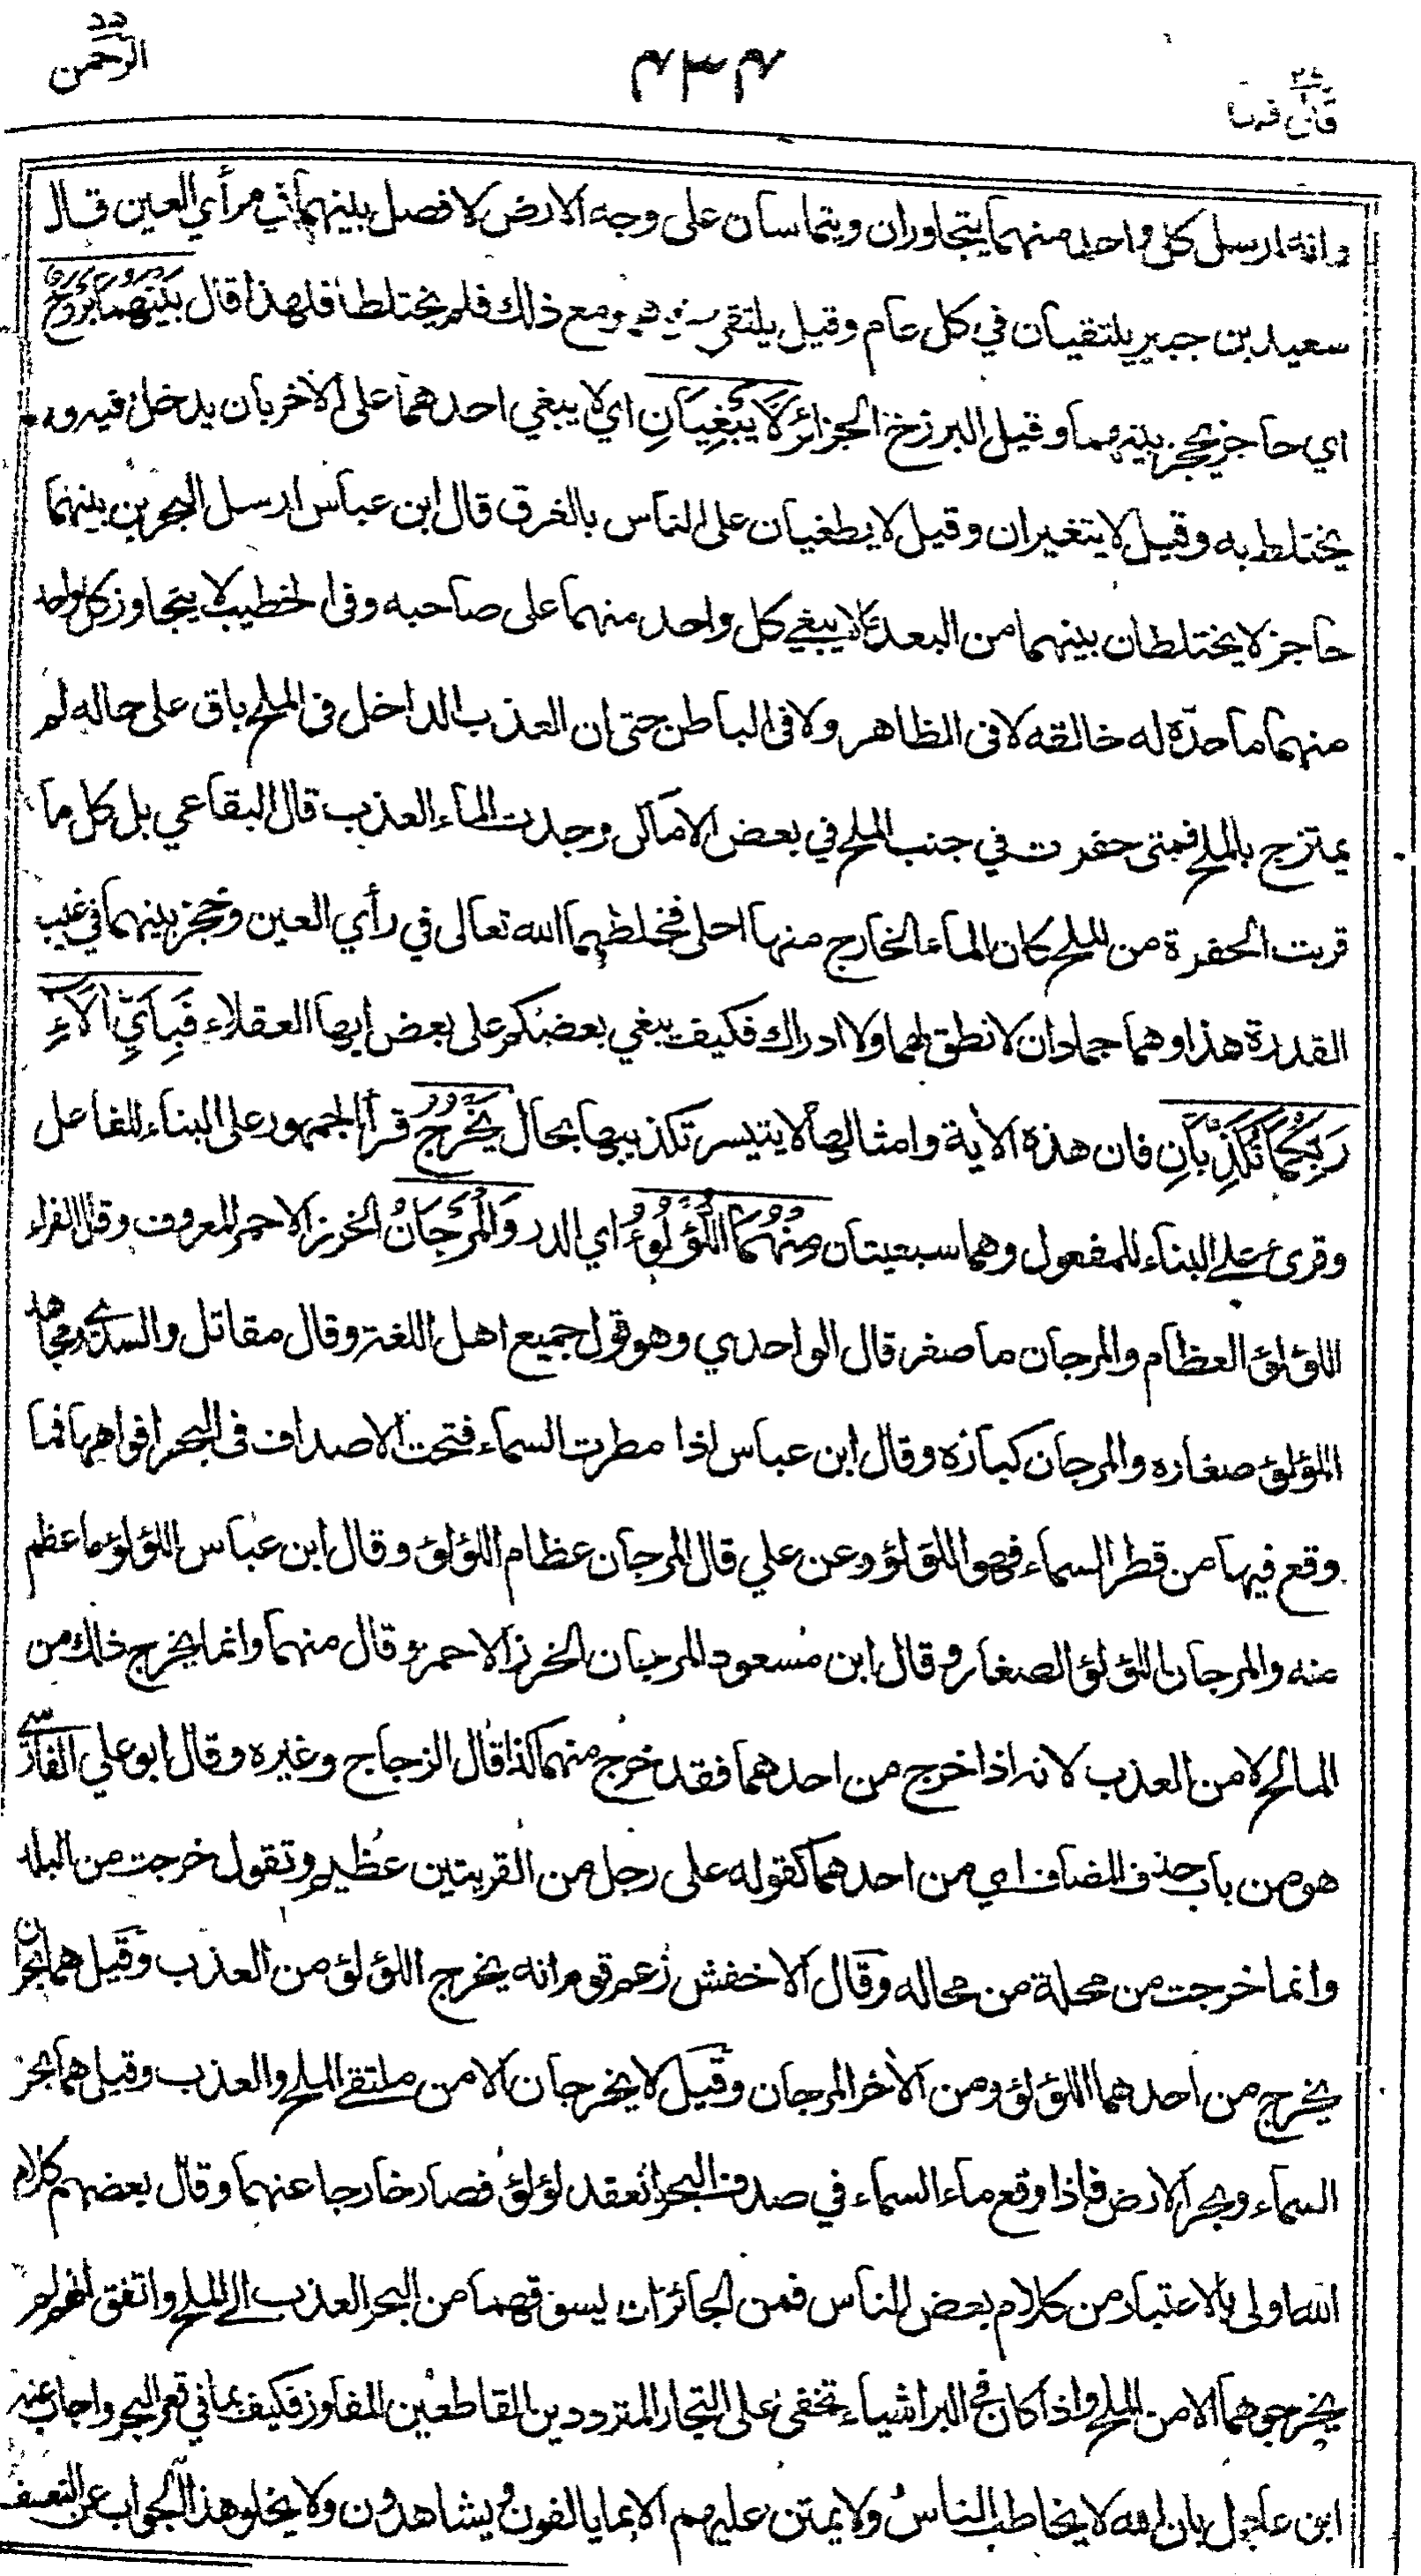 الرحمن
٥٥
٤٣٤
٢٧
وانه ارسل كل واحد منهما يتجاوران ويتماسان على وجه الارض لا فصل بينهما في مرأي العين قال
سعيد بن جبير يلتقيان في كل عام وقيل يلتقي ومع ذلك فلم يختلطا فلهذا قال بَيْنَهُمَا بَرْزَخٌ
اي حاجز يحجز بينهما وقيل البرزخ الجزائر لَّا يَبْغِيَانِ اي لا يبغي احدهما على الآخر بان يدخل فيه و
يختلط به وقيل لا يتغيران وقيل لا يطغيان على الناس بالغرق قال ابن عباس ارسل البحرين بينهما
حاجز لا يختلطان بينهما من البعد ما لا يبغي كل واحد منهما على صاحبه وفي الخطيب لا يتجاوز كل واحد
منهما ما حده له خالقه لا في الظاهر ولا في الباطن حتى ان العذب الداخل في الملح باق على حاله لم
يمتزج بالملح فمتى حفرت في جنب الملح في بعض الاماكن وجدت الماء العذب قال البقاعي بل كل ما
قربت الحفرة من الملح كان الماء الخارج منها احلى فخلطهما الله تعالى في رأي العين وحجز بينهما في غيب
القدرة هذا وهما جمادان لا نطق لهما ولا ادراك فكيف يبغي بعضكم على بعض ايها العقلاء فَبِأَيِّ آلَاءِ
رَبِّكُمَا تُكَذِّبَانِ فان هذه الآية وامثالها لا يتيسر تكذيبها بحال يَخْرُجُ قرأ الجمهور على البناء للفاعل
وقرئ على البناء للمفعول وهما سبعيتان مِنْهُمَا اللُّؤْلُؤُ اي الدر وَالْمَرْجَانُ الخرز الاحمر المعروف وقال الفراء
اللؤلؤ العظام والمرجان ما صغر قال الواحدي وهو قول جميع اهل اللغة وقال مقاتل والسدي ومجاهد
اللؤلؤ صغاره والمرجان كباره وقال ابن عباس اذا مطرت السماء فتحت الاصداف في البحر افواهها فما
وقع فيها من قطر السماء فهو اللؤلؤ وعن علي قال المرجان عظام اللؤلؤ وقال ابن عباس اللؤلؤ ما عظم
منه والمرجان اللؤلؤ الصغار وقال ابن مسعود المرجان الخرز الاحمر وقال منهما وانما يخرج ذلك من
المالح لا من العذب لانه اذا خرج من احدهما فقد خرج منهما كذا قال الزجاج وغيره وقال ابو علي الفارسي
هو من باب حذف المضاف اي من احدهما كقوله على رجل من القريتين عظيم وتقول خرجت من البلد
وانما خرجت من محلة من محاله وقال الاخفش زعم قوم انه يخرج اللؤلؤ من العذب وقيل هما بحران
يخرج من احدهما اللؤلؤ ومن الآخر المرجان وقيل لا يخرجان الا من ملتقى الملح والعذب وقيل هما بحر
السماء وبحر الارض فاذا وقع ماء السماء في صدف البحر انعقد لؤلؤ فصار خارجا عنهما وقال بعضهم كلام
الله اولى بالاعتبار من كلام بعض الناس فمن الجائز ان يسوقهما من البحر العذب الى الملح واتفق انهم لم
يخرجوهما الا من الملح واذا كان في البر اشياء تخفى على التجار المترددين القاطعين المفاوز فكيف بما في قعر البحر واجاب عنه
ابن عادل بان الله لا يخاطب الناس ولا يمتن عليهم الا بما يالفون ويشاهدون ولا يخلو هذا الجواب عن التعسف